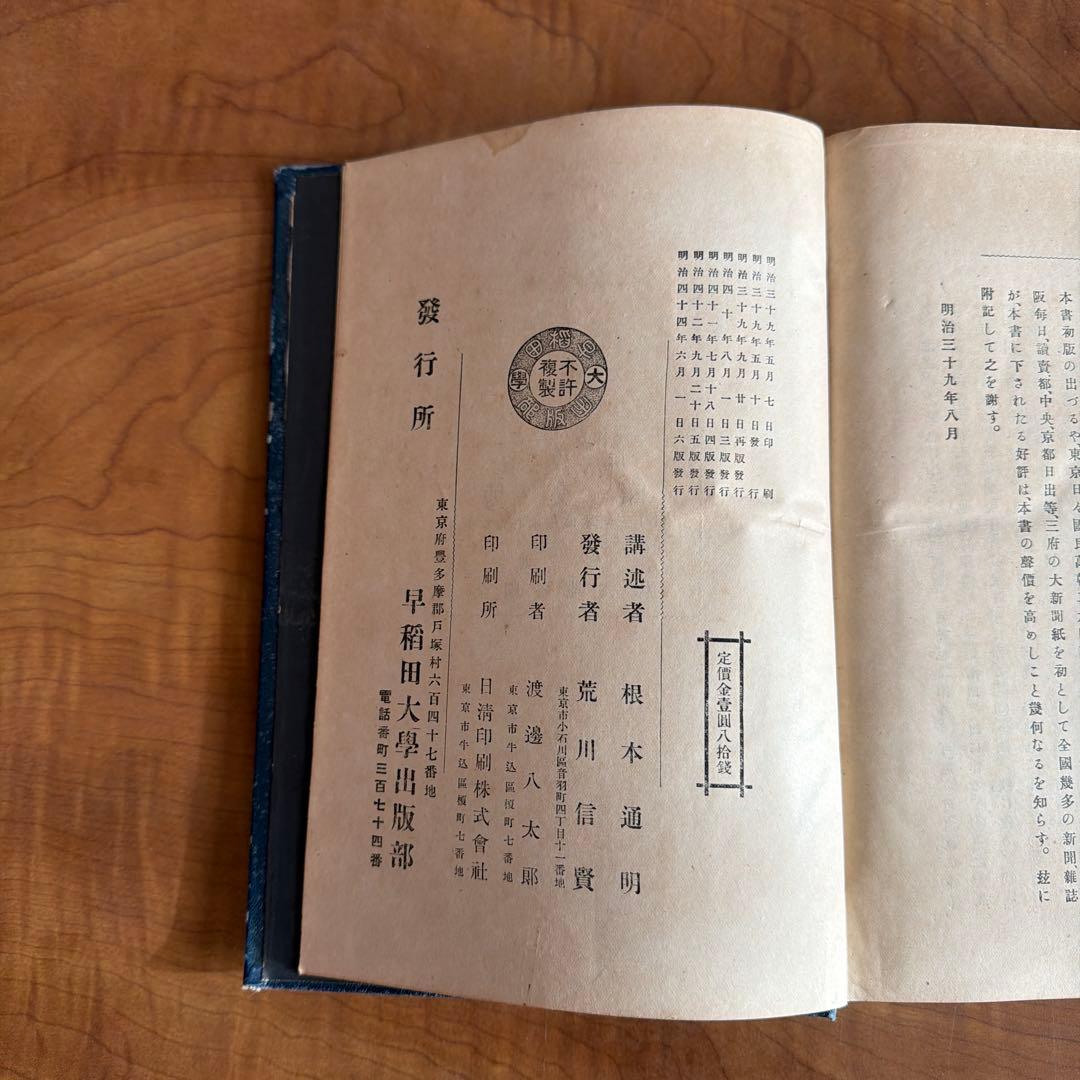 本書初版の出づるや、東京日々國民
阪每日、讀賣、都、中央、京都日出等、三府の大新聞紙を初として全國幾多の新聞、雜誌
が、本書に下されたる好評は、本書の聲價を高めしこと幾何なるを知らず。玆に
附記して之を謝す。
明治三十九年八月
明治三十九年五月七日印刷
明治三十九年五月十日發行
明治三十九年九月廿日再版發行
明治四十年八月一日三版發行
明治四十一年七月十八日四版發行
明治四十二年九月二十日五版發行
明治四十四年六月一日六版發行
定價金壹圓八拾錢
不許
複製
大學出版
稻田
講述者 根本通明
發行者 荒川信賢
東京市小石川區音羽町四丁目十一番地
印刷者 渡邊八太郎
東京市牛込區榎町七番地
印刷所 日淸印刷株式會社
東京市牛込區榎町七番地
發行所
東京府豐多摩郡戶塚村六百四十七番地
早稻田大學出版部
電話番町三百七十四番